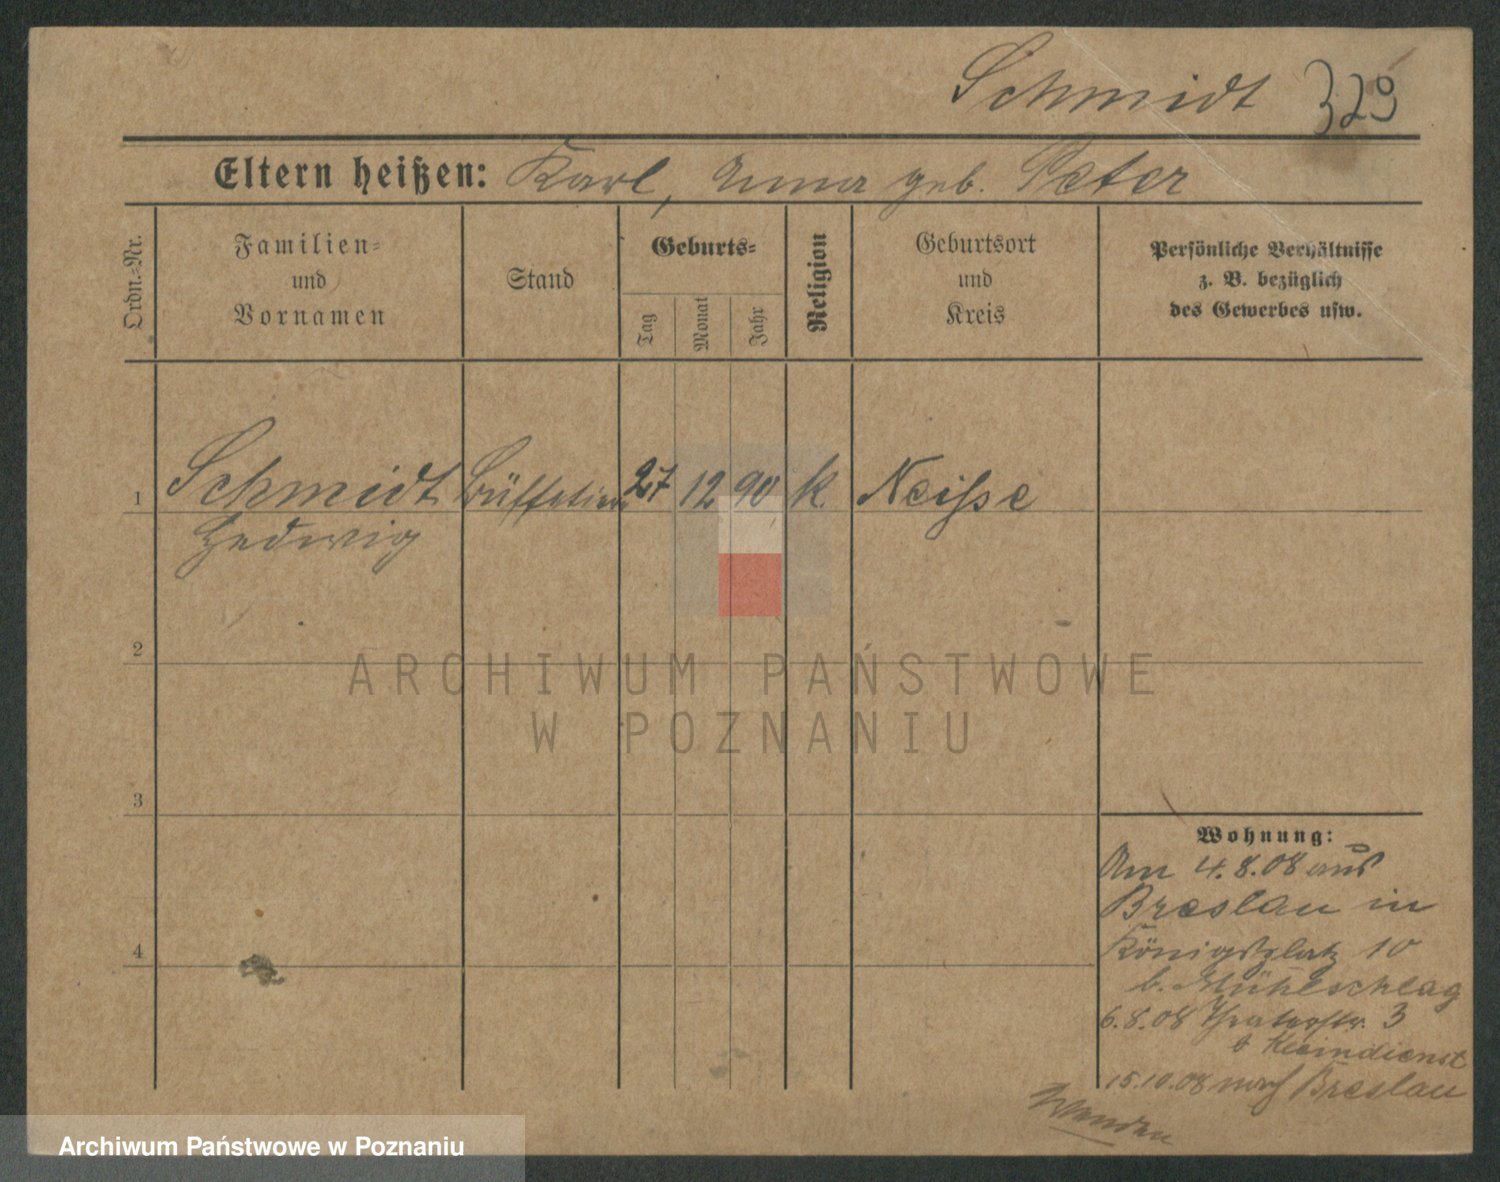 Schmidt 329
Eltern heißen: Karl, Anna geb. Peter
Ordn.=Nr.
Familien=
und
Vornamen
Stand
Geburts=
Tag
Monat
Jahr
Religion
Geburtsort
und
Kreis
Persönliche Verhältnisse
z. B. bezüglich
des Gewerbes usw.
1 Schmidt Büffetiere 27 12 90 k. Neisse
Hedwig
2
ARCHIWUM PAŃSTWOWE
W POZNANIU
3
4
Wohnung:
Am 4.8.08 aus
Breslau in
Königsplatz 10
b. Mühlschlag
6.8.08 Theaterstr. 3
b Kleindienst
15.10.08 nach Breslau
Wenden
Archiwum Państwowe w Poznaniu